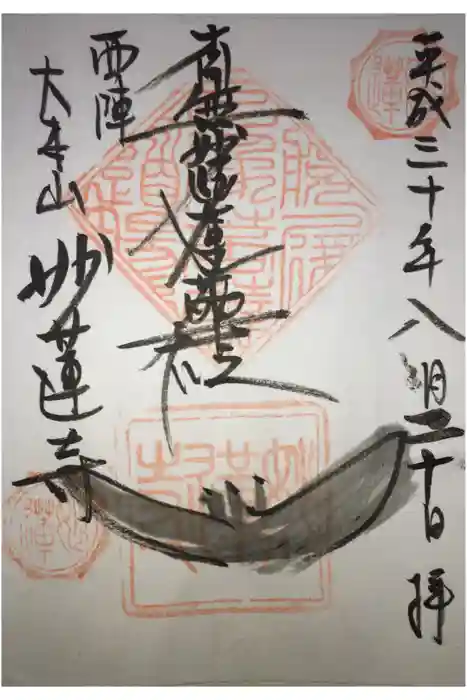 平成三十年八月二十日 拝
南無妙法蓮華経
西陣
大本山 妙蓮寺